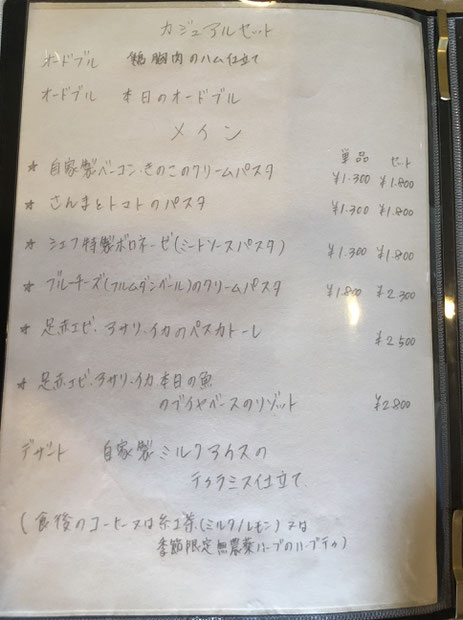 カジュアルセット
オードブル 鶏胸肉のハム仕立て
オードブル 本日のオードブル
メイン
単品 セット
* 自家製ベーコン・きのこのクリームパスタ ¥1.300 ¥1.800
* さんまとトマトのパスタ ¥1.300 ¥1.800
* シェフ特製ボロネーゼ(ミートソースパスタ) ¥1.300 ¥1.800
* ブルーチーズ(フルムダンベール)のクリームパスタ ¥1.800 ¥2.300
* 足赤エビ・アサリ・イカのペスカトーレ ¥2500
* 足赤エビ・アサリ・イカ 本日の魚
のブイヤベースのリゾット ¥2.800
デザート 自家製ミルクアイスの
ティラミス仕立て
(食後のコーヒー又は紅茶(ミルク/レモン)又は
季節限定無農薬ハーブのハーブティ)